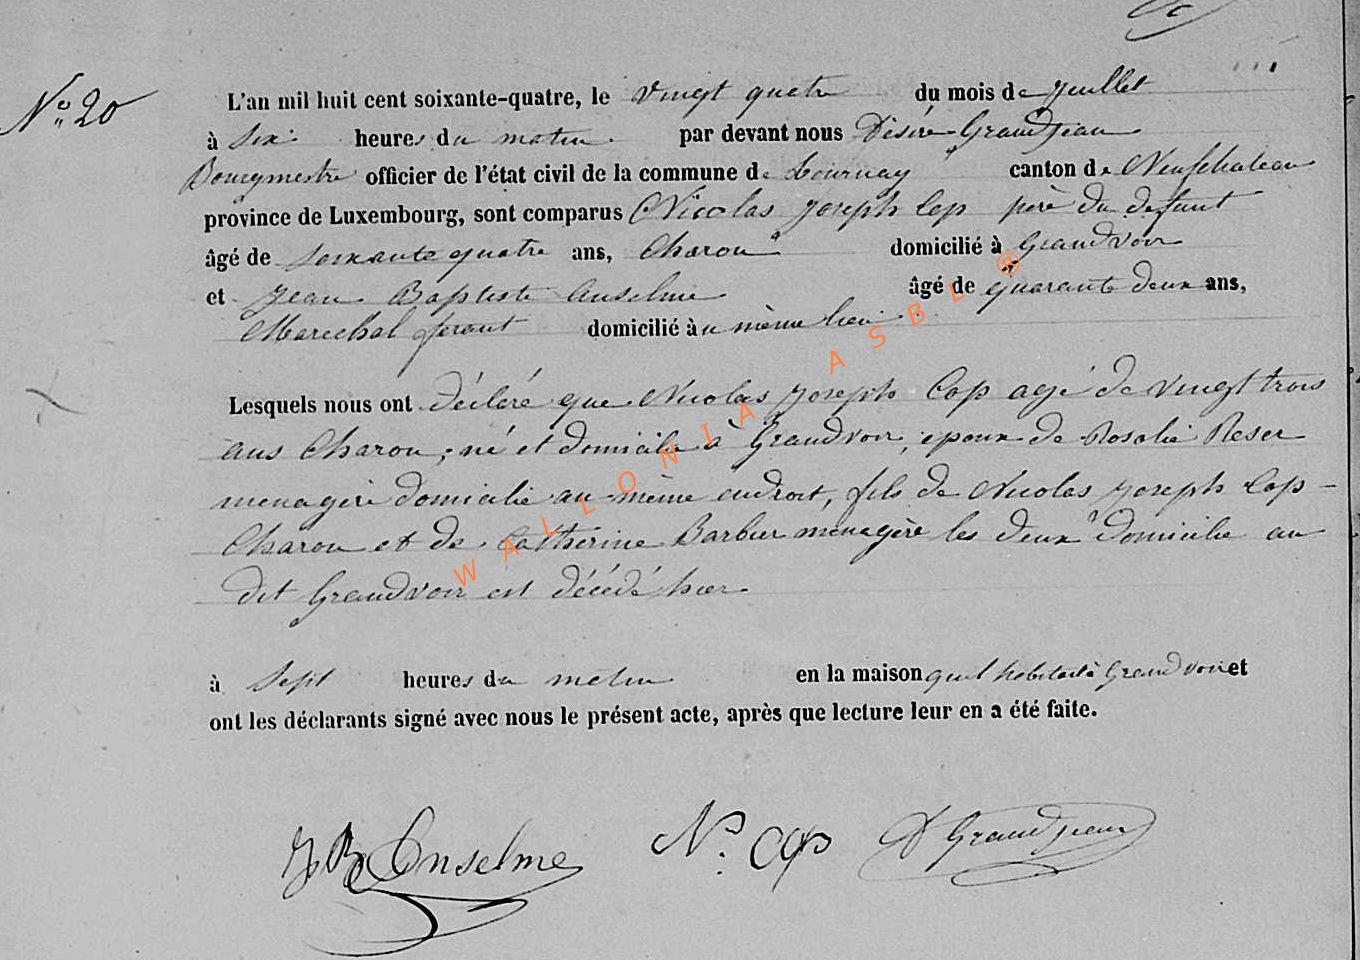 N° 20
L'an mil huit cent soixante-quatre, le vingt quatre du mois de Juillet
à Six heures du matin par devant nous Désiré Grandjean
Bourgmestre officier de l'état civil de la commune de Tournay canton de Neufchateau
province de Luxembourg, sont comparus Nicolas Joseph Cop père du defunt
âgé de soixante quatre ans, Charon domicilié à Grandvoir
et Jean Baptiste Anselme âgé de quarante deux ans,
Marechal ferant domicilié au même lieu
Lesquels nous ont déclaré que Nicolas Joseph Cop agé de vingt trois
ans Charon, né et domicilié à Grandvoir, epoux de Rosalie Reser
menagère domicilié au même endroit, fils de Nicolas Joseph Cop -
Charon et de Catherine Barbier menagère les deux domicilié au
dit Grandvoir est décédé hier
à Sept heures du matin en la maison qu'il habitait à Grandvoir et
ont les déclarants signé avec nous le présent acte, après que lecture leur en a été faite.
JB Anselme N. Cop D Grandjean
WALLONIA ASBL ®